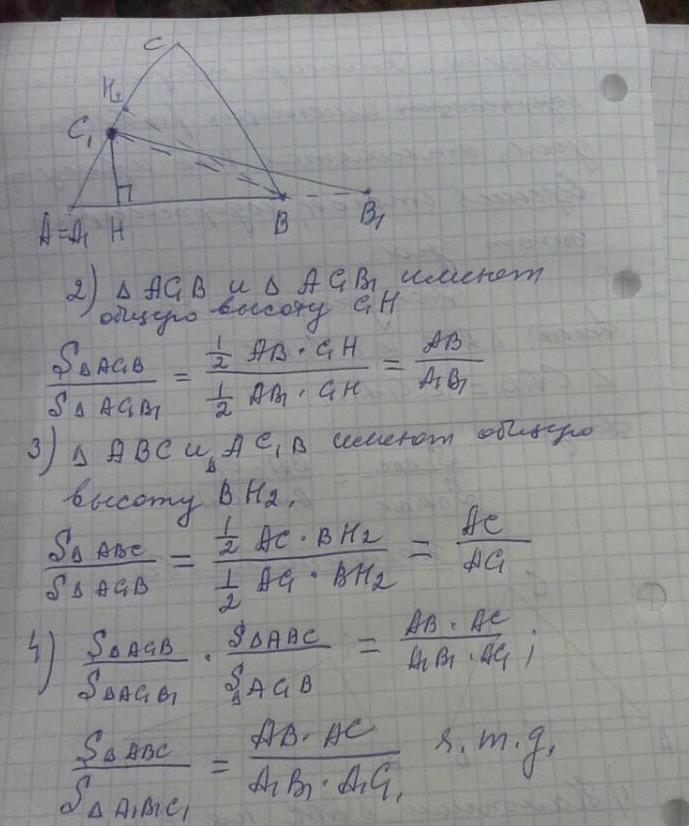 C
H₂
C₁
A=A₁ H B B₁
2) △ AC₁B и △ AC₁B₁ имеют
общую высоту C₁H
S△AC₁B / S△AC₁B₁ = ½ AB · C₁H / ½ AB₁ · C₁H = AB / A₁B₁
3) △ ABC и △ AC₁B имеют общую
высоту BH₂.
S△ABC / S△AC₁B = ½ AC · BH₂ / ½ AC₁ · BH₂ = AC / AC₁
4) S△AC₁B / S△AC₁B₁ · S△ABC / S△AC₁B = AB · AC / A₁B₁ · AC₁ ;
S△ABC / S△A₁B₁C₁ = AB · AC / A₁B₁ · A₁C₁ ч.т.д.